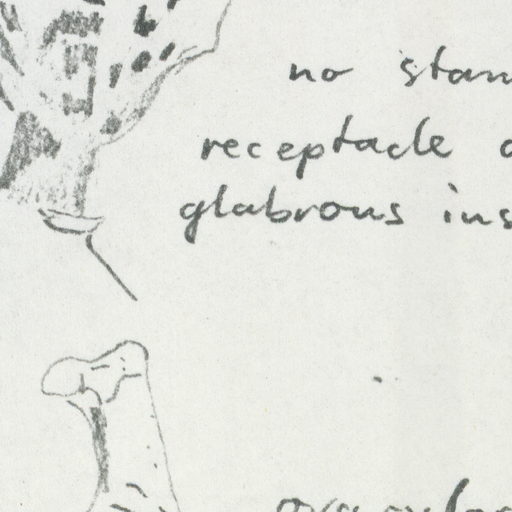 no stam
receptacle
glabrous ins